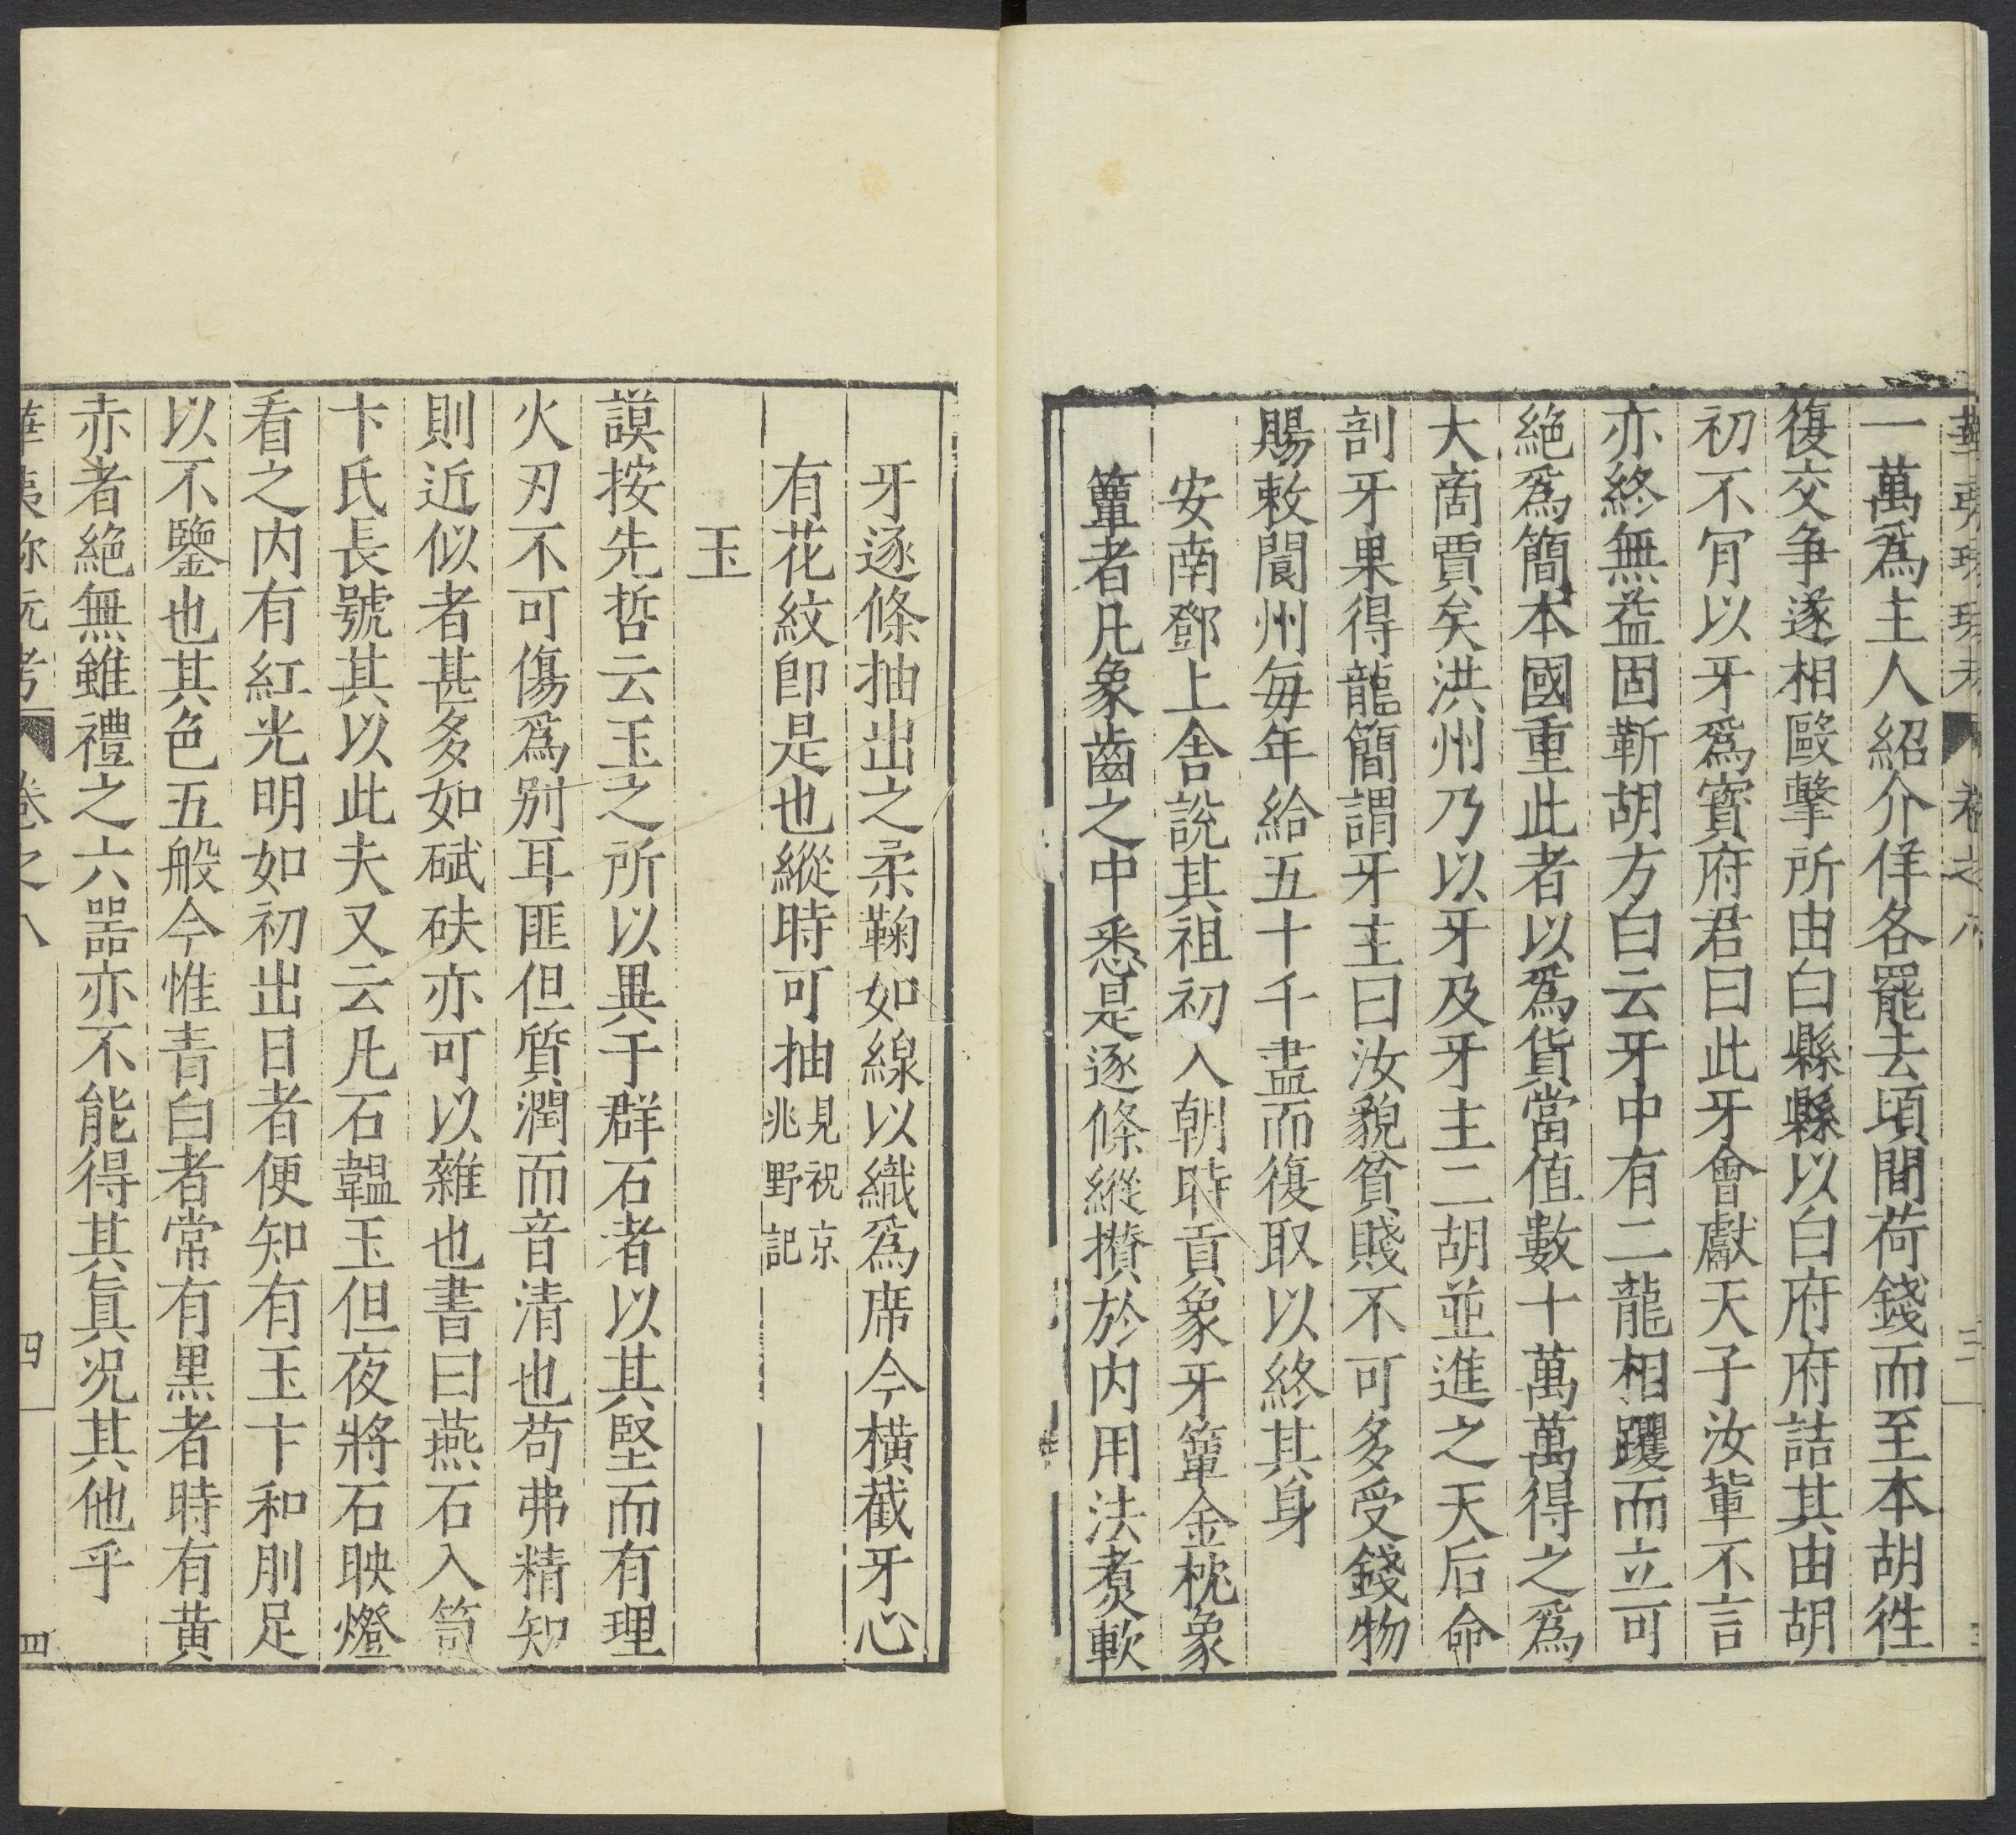 華夷珎玩考 卷之八 三
一萬爲主人紹介佯各罷去頃間荷錢而至本胡徃
復交争遂相毆擊所由白縣縣以白府府詰其由胡
初不肎以牙爲寳府君曰此牙會獻天子汝輩不言
亦終無益固靳胡方白云牙中有二龍相躩而立可
絕爲簡本國重此者以爲貨當值數十萬萬得之爲
大啇賈矣洪州乃以牙及牙主二胡並進之天后命
剖牙果得龍簡謂牙主曰汝貌貧賤不可多受錢物
賜敕閬州每年給五十千盡而復取以終其身
安南鄧上舍說其祖初入朝時貢象牙簟金枕象
簟者凡象齒之中悉是逐條縱攅於内用法煑軟
牙逐條抽出之柔鞠如線以織爲席今橫截牙心
有花紋卽是也縱時可抽見祝京兆野記
玉
謨按先哲云玉之所以異于群石者以其堅而有理
火刃不可傷爲别耳匪但質潤而音清也苟弗精知
則近似者甚多如碔砆亦可以雜也書曰燕石入笥
卞氏長號其以此夫又云凡石韞玉但夜將石映燈
看之内有紅光明如初出日者便知有玉卞和刖足
以不鑒也其色五般今惟青白者常有黒者時有黄
赤者絕無雖禮之六噐亦不能得其眞况其他乎
華夷珎玩考 卷之八 四 四